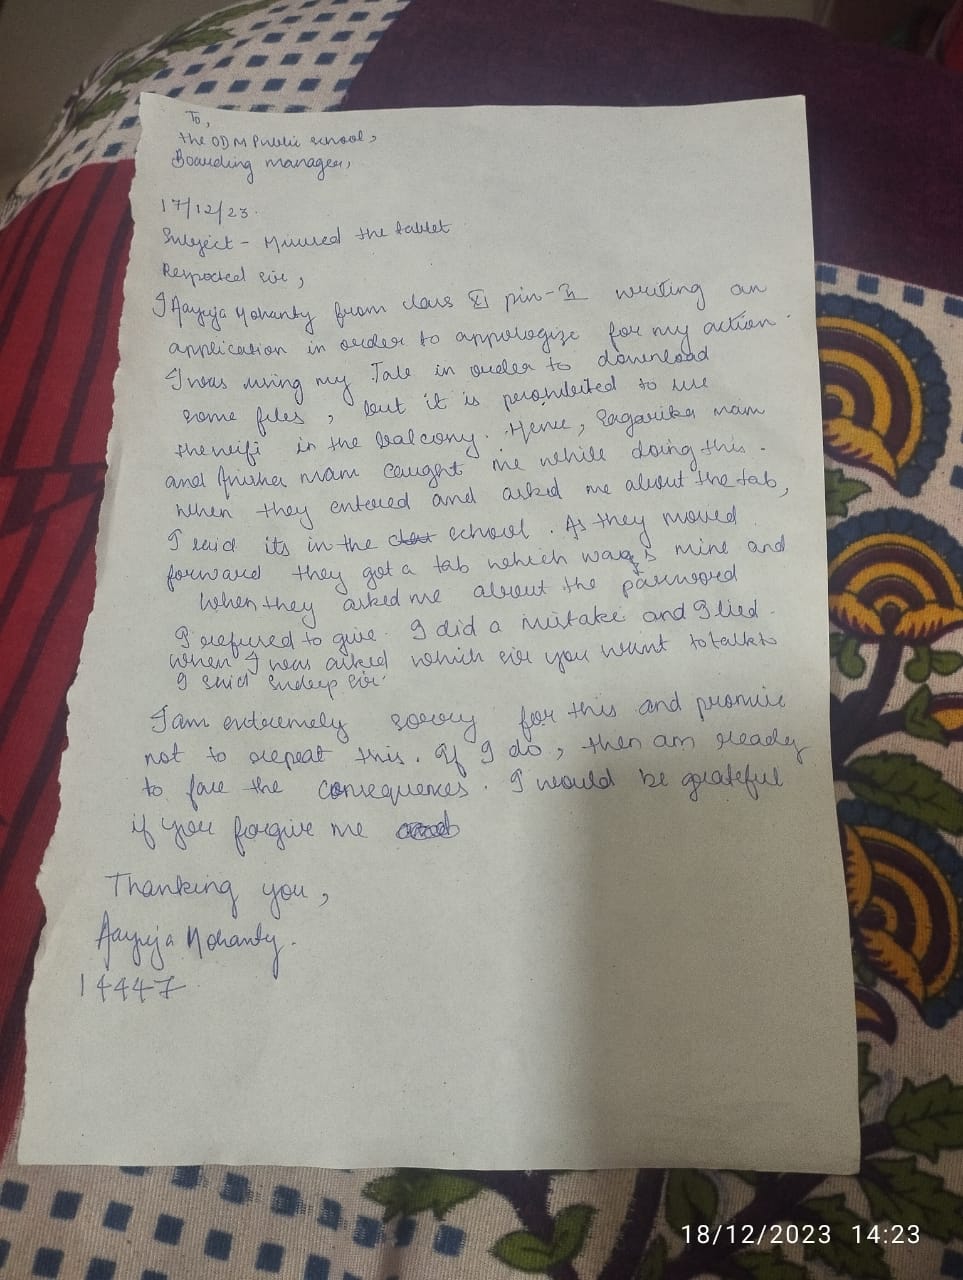 To,
the ODM Public school,
Boarding manager,
17/12/23.
Subject - Misused the tablet
Respected sir,
I Aayuja Mohanty from class XI pin - writing an
application in order to appologize for my action.
I was using my Tab in order to download
some files, but it is prohibited to use
the wifi in the balcony. Hence, Sagarika mam
and mam caught me while doing this.
When they entered and asked me about the tab,
I said its in the school. As they moved
forward they got a tab which was mine and
When they asked me about the password
I refused to give. I did a mistake and I lied.
When I was asked which sir you want to talk to
I said sir.
I am extremely sorry for this and promise
not to repeat this. If I do, then am ready
to face the consequences. I would be grateful
if you forgive me
Thanking you,
Aayuja Mohanty.
14447.
18/12/2023 14:23